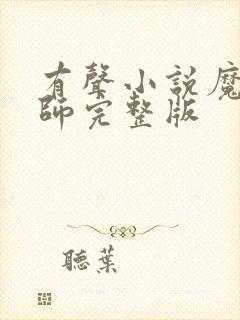 有聲小說魔
師完整版
聽葉